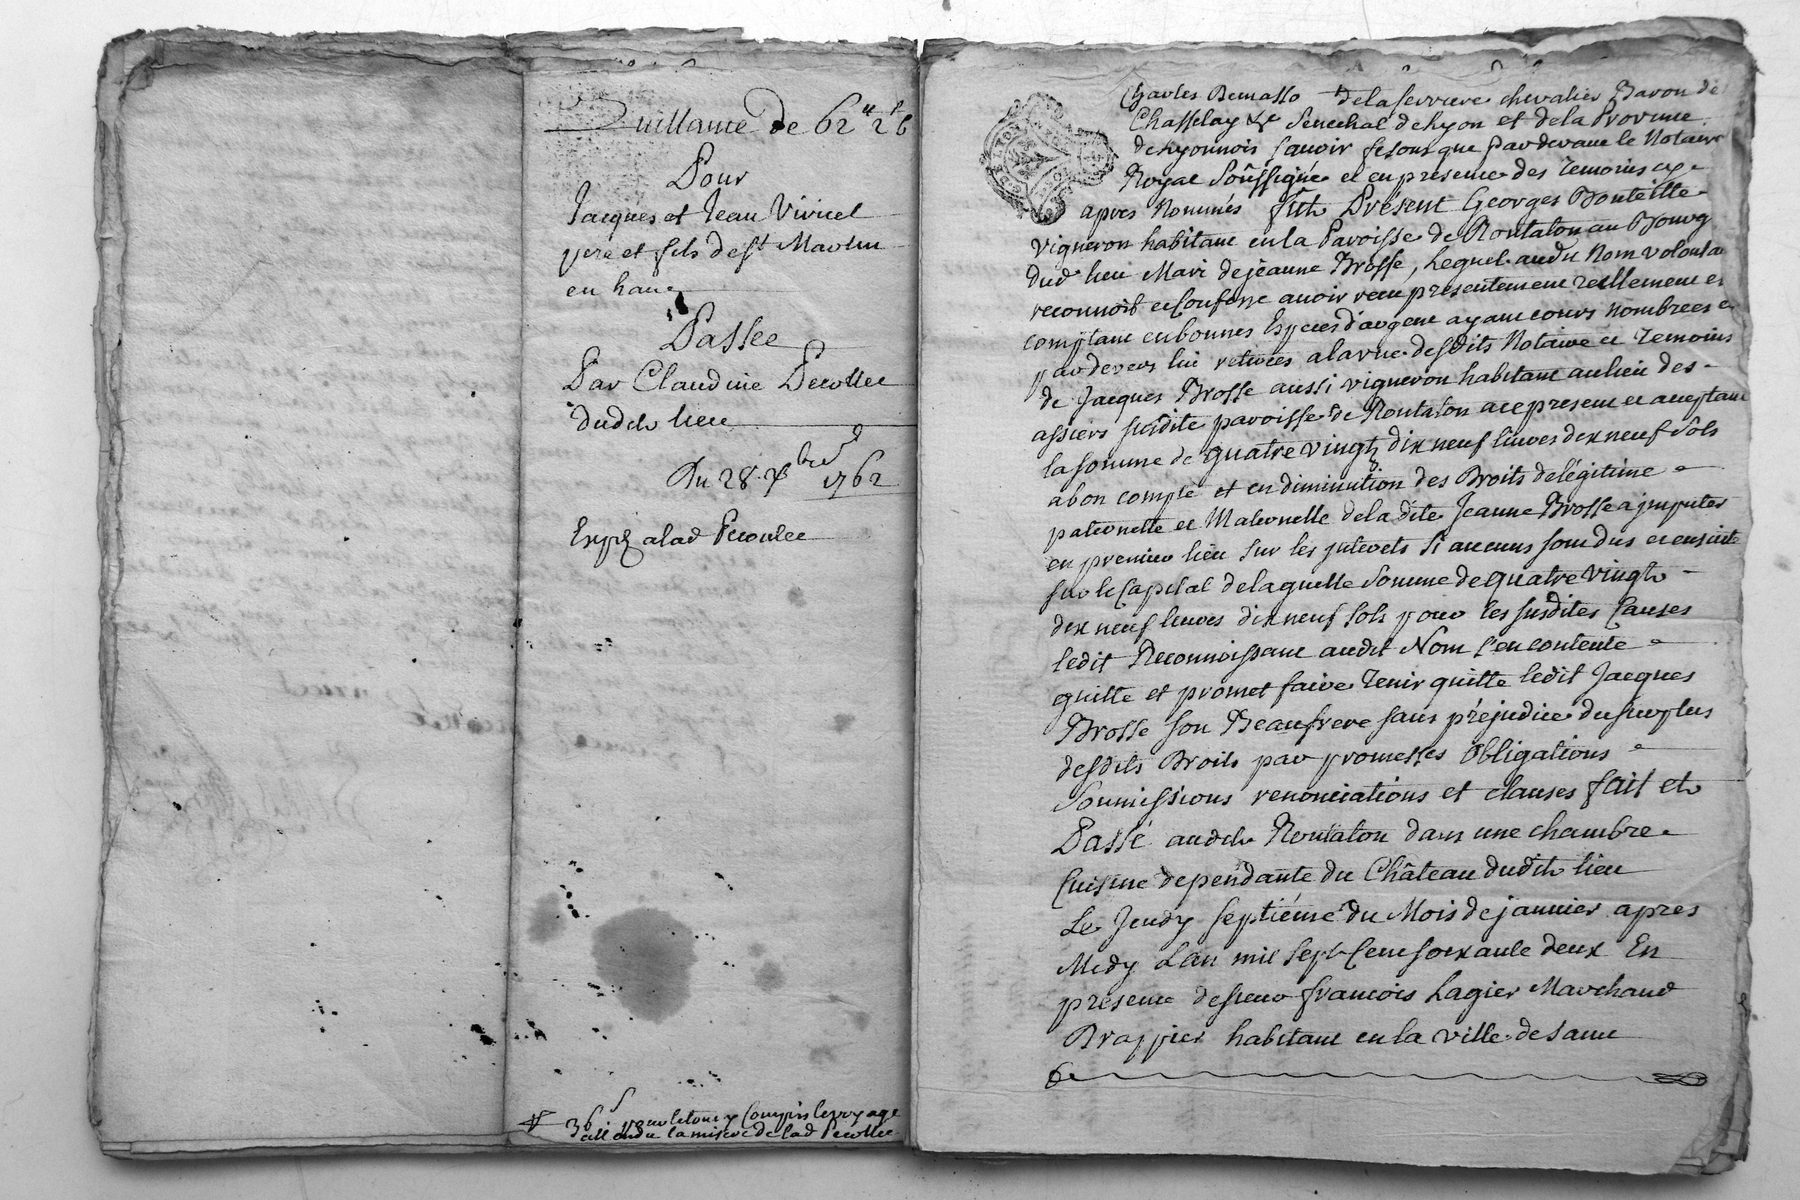 Quittance de 62
Pour
Jacques et Jean Vivicel
pere et fils de st Martin
en haut
Passée
Par Claudine
dudit lieu
Du 28 1762
Exp alad
36 s le tout y Compris le voyage
attendu la misere de lad
Charles Demasso de la ferriere chevalier Baron de
Chasselay &c Senechal de Lyon et de la Province
de Lyonnois scavoir fesons que Pardevant le Notaire
Royal Soussigné et en presence des Temoins cy
apres Nommés fut Présent Georges Bouteille
vigneron habitant en la Paroisse de Rontalon au Bourg
dud lieu Mari de jeanne Brosse, Lequel audit Nom
reconnoit et Confesse avoir recu presentement reellement et
comptant en bonnes Especes d'argent ayant cours nombrees et
pardevers lui retirées a la vue desdits Notaire et Temoins
de Jacques Brosse aussi vigneron habitant au lieu des
assiers susdite paroisse de Rontalon ace present et acceptant
la somme de quatre vingt dix neuf livres dix neuf Sols
abon compte et en diminution des Droits de légitime
paternelle et Maternelle de la dite Jeanne Brosse a jmputer
en premier lieu sur les jnterets si aucuns sont dus et ensuite
sur le Capital de laquelle Somme de quatre vingt
dix neuf livres dix neuf sols pour les susdites Causes
ledit Reconnoissant audit Nom s'en contente
quitte et promet faire Tenir quitte ledit Jacques
Brosse son Beaufrere sans préjudice du surplus
desdits Droits par promesses Obligations
Soumissions renonciations et clauses fait et
Passé audit Rontalon dans une chambre
Cuisine dependante du Château dudit lieu
Le Jeudy septiéme du Mois de janvier apres
Midy L'an mil Sept Cent soixante deux En
presence de sieur francois Lagier Marchand
Drappier habitant en la ville de saint